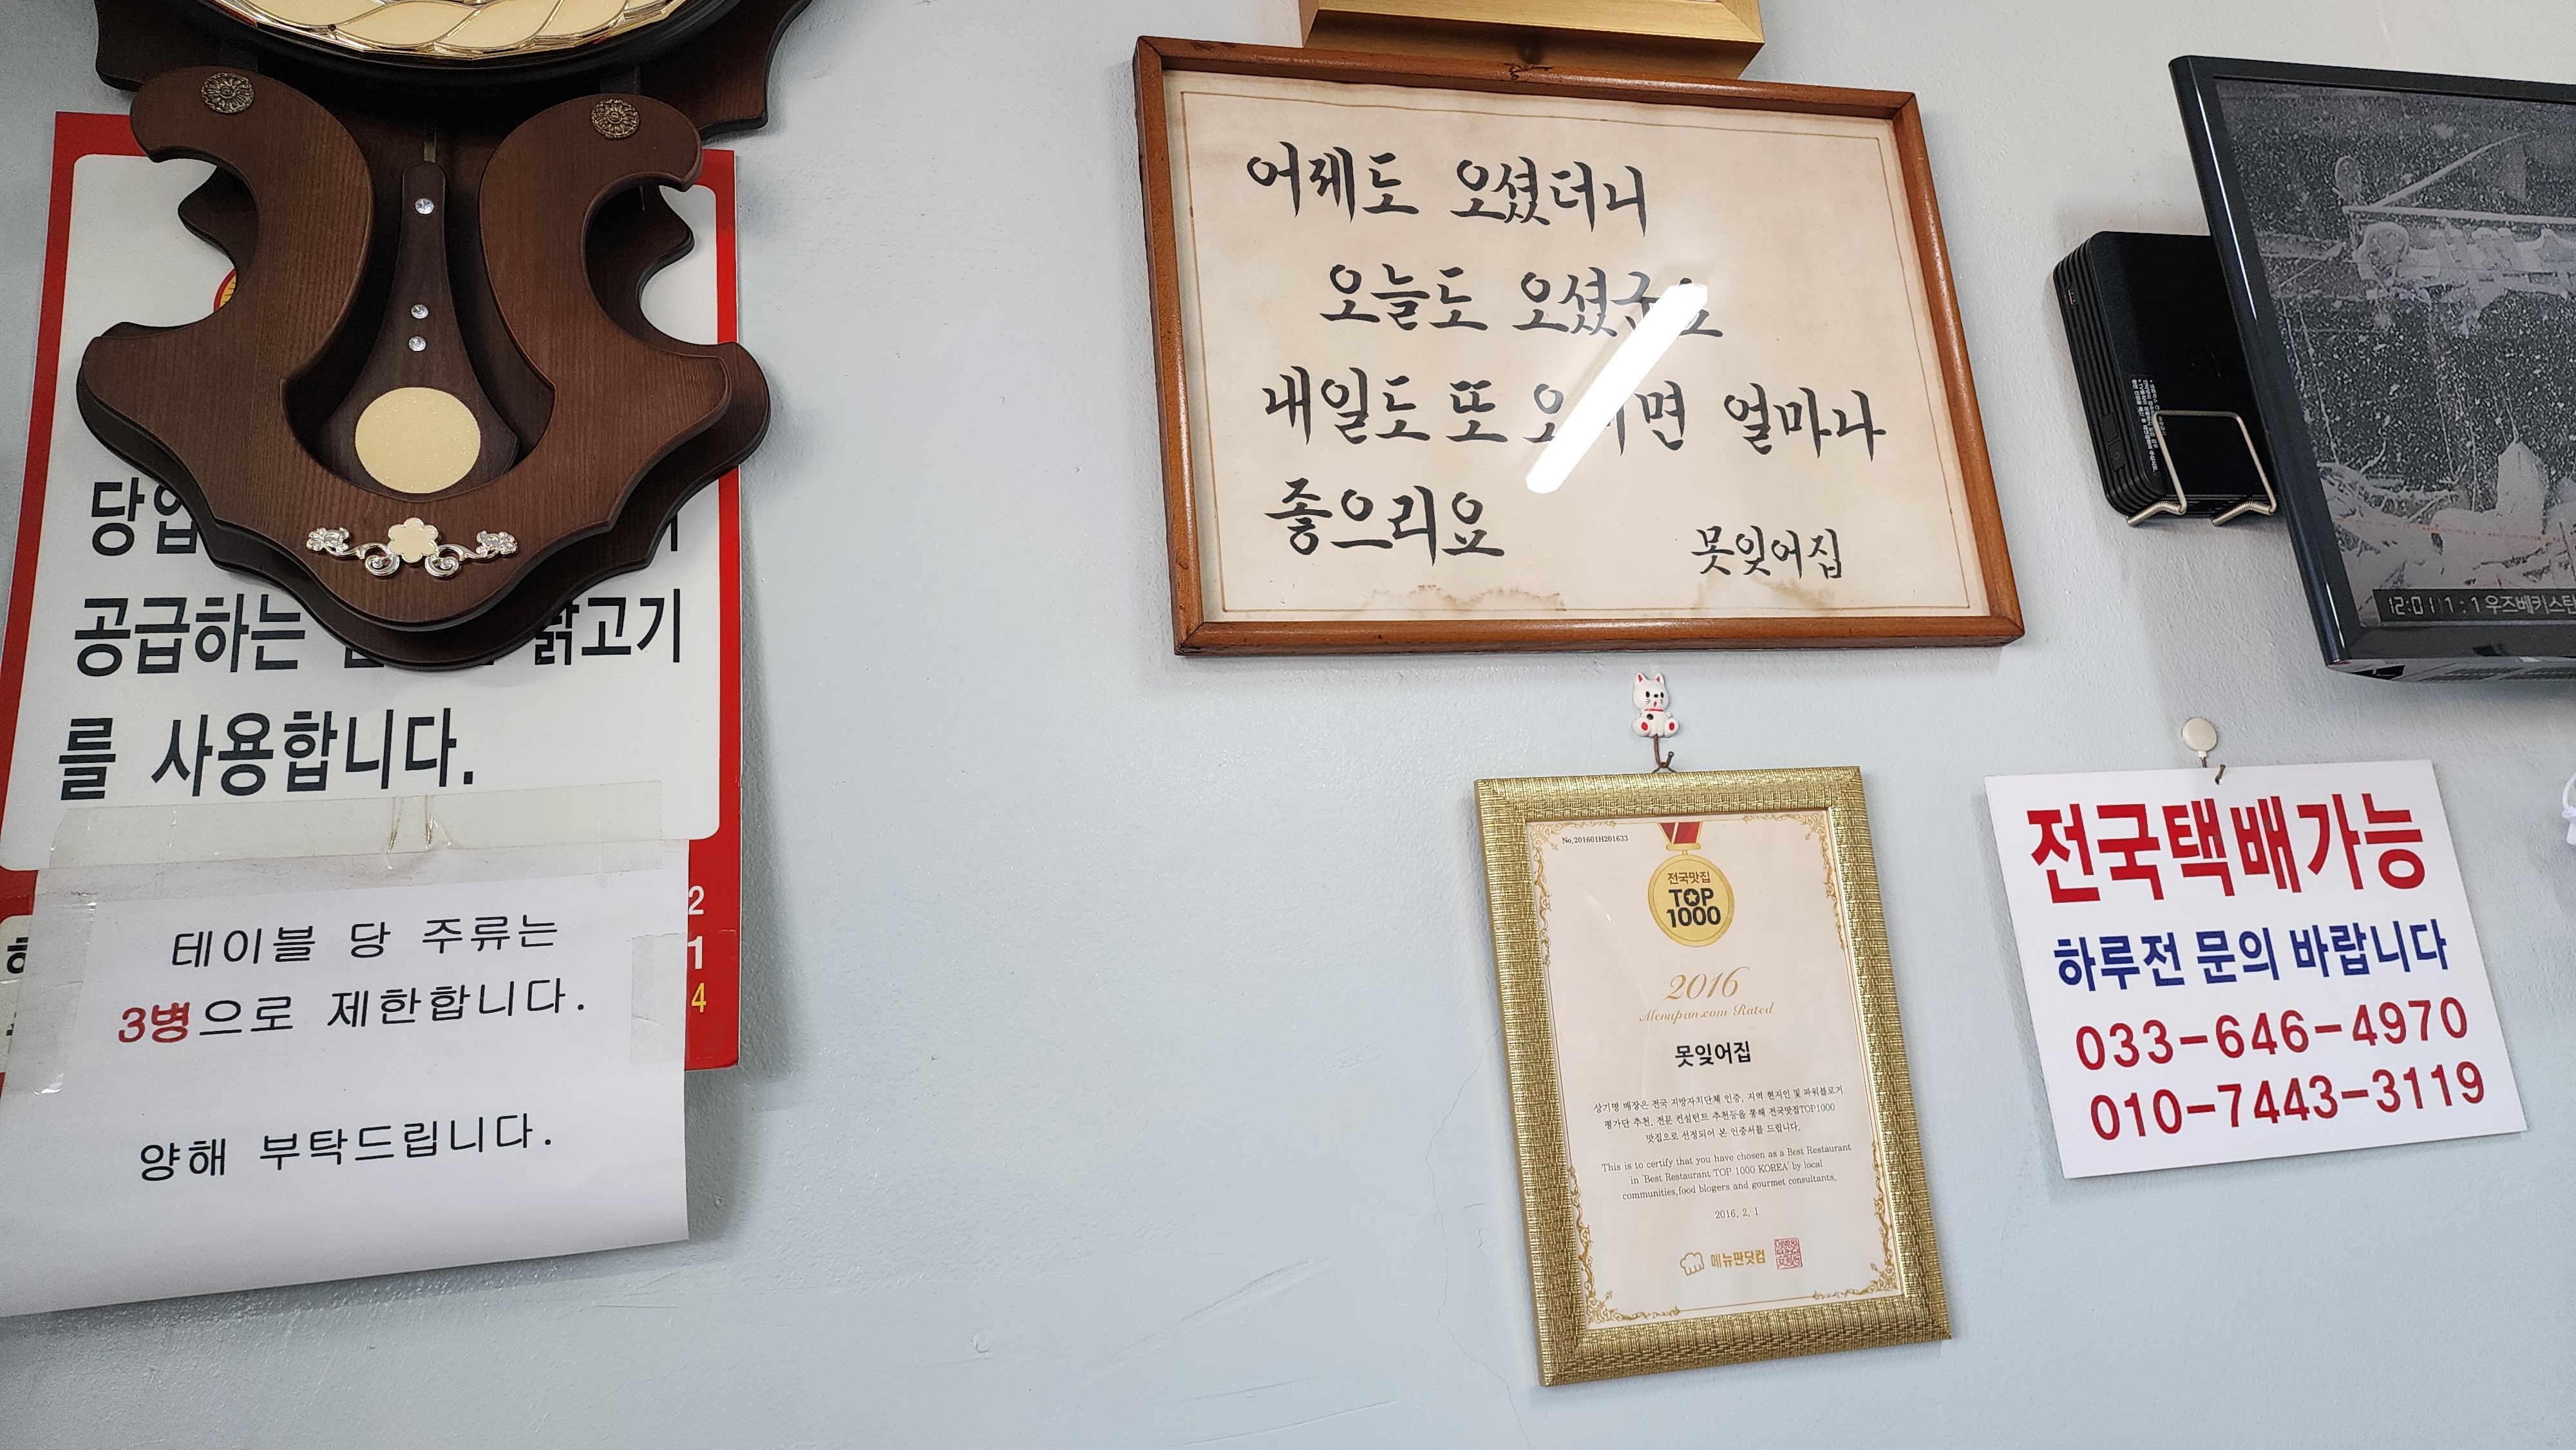 공급하는
닭고기
를 사용합니다.
2
1
4
테이블 당 주류는
3병으로 제한합니다.
양해 부탁드립니다.
어제도 오셨더니
오늘도 오셨군요
내일도 또 얼마나
좋으리요
못잊어집
12:01
1:1 우즈베키스탄
No.201601H201633
전국맛집
TOP
1000
2016
Menupan.com Rated
못잊어집
상기명 매장은 전국 지방자치단체 인증, 지역 현지인 및 파워블로거
평가단 추천, 전문 컨설턴트 추천등을 통해 전국맛집TOP1000
맛집으로 선정되어 본 인증서를 드립니다.
This is to certify that you have chosen as a Best Restaurant
in 'Best Restaurant TOP 1000 KOREA' by local
communities,food blogers and gourmet consultants,
2016. 2. 1
메뉴판닷컴
전국택배가능
하루전 문의 바랍니다
033-646-4970
010-7443-3119